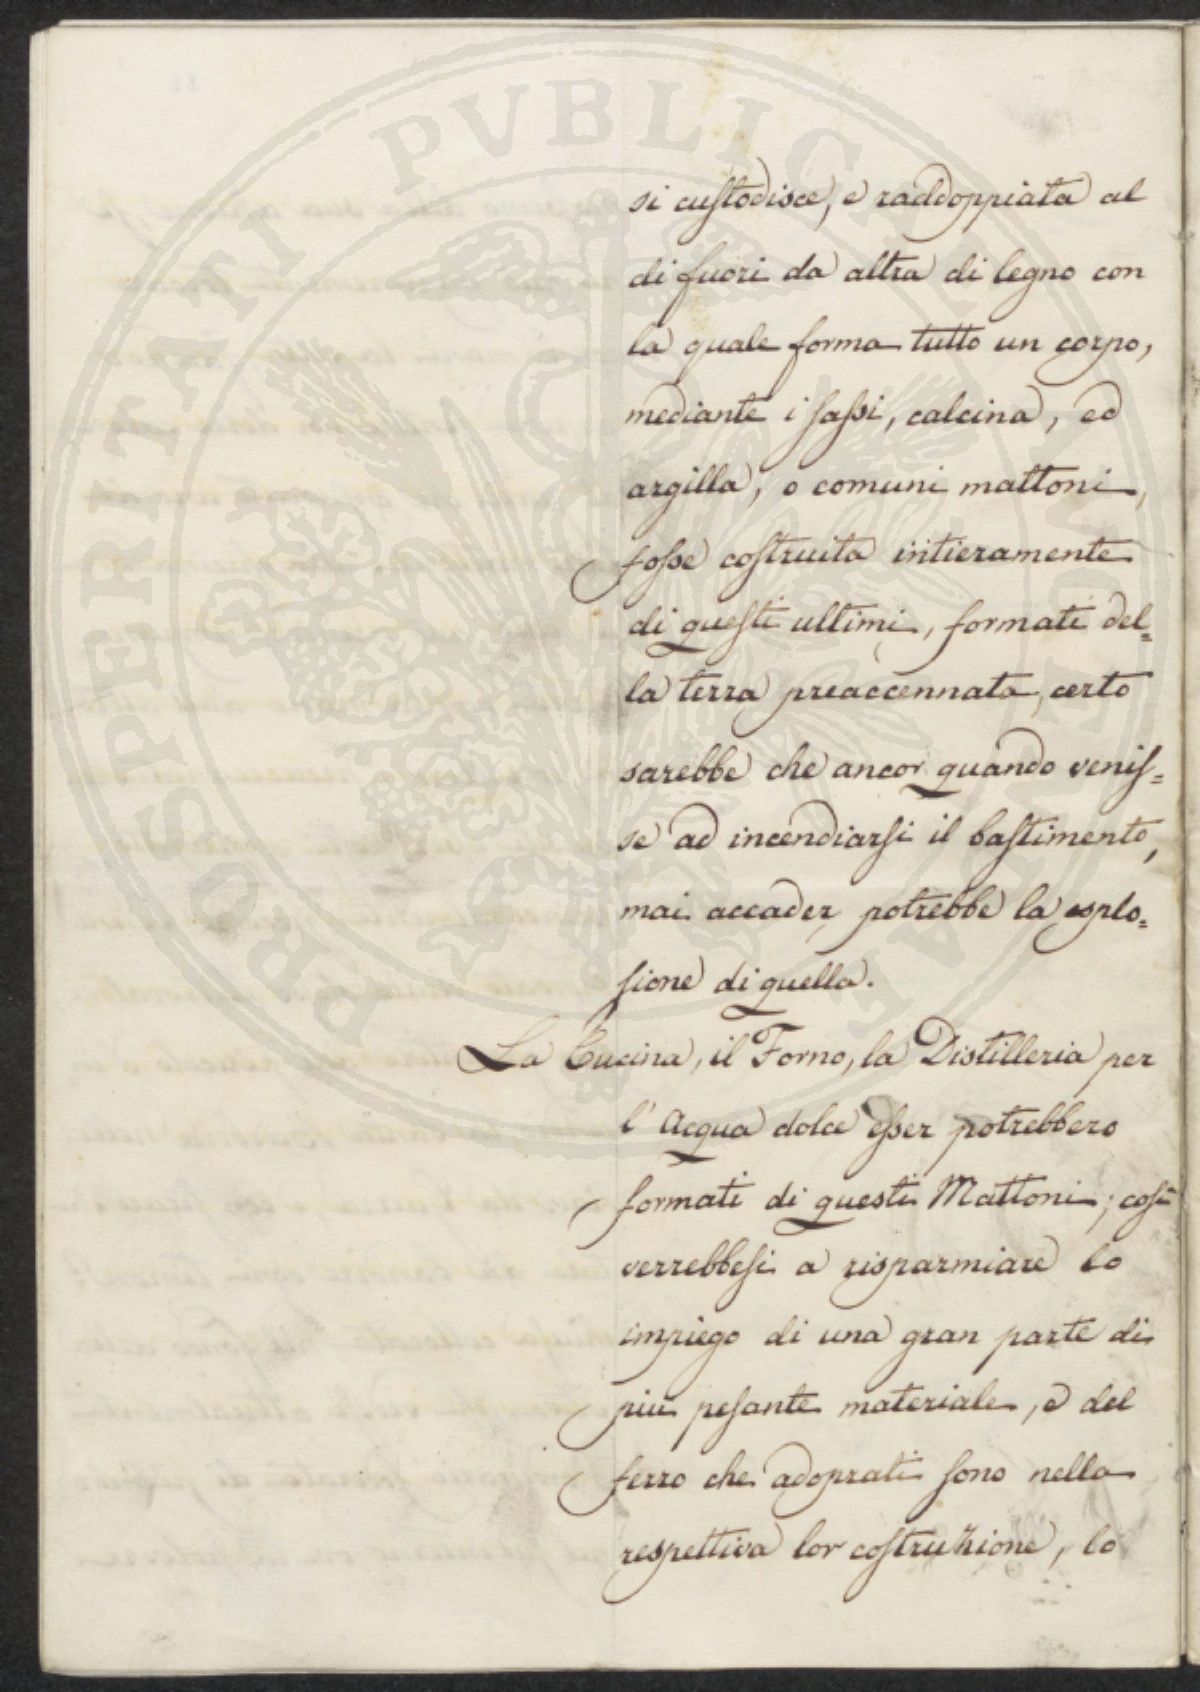 si custodisce, e raddoppiata al
di fuori da altra di legno con
la quale forma tutto un corpo,
mediante i sassi, calcina, ed
argilla, o comuni mattoni,
fosse costruita intieramente
di questi ultimi, formati del=
la terra preaccennata, certo
sarebbe che ancor quando venis=
se ad incendiarsi il bastimento,
mai accader potrebbe la esplo=
sione di quella.
La Cucina, il Forno, la Distilleria per
l' Acqua dolce esser potrebbero
formati di questi Mattoni; così
verrebbesi a risparmiare lo
impiego di una gran parte di
più pesante materiale, e del
ferro che adoprati sono nella
respettiva lor costruzione, lo
PROSPERITATI PVBLICAE AVGENDAE